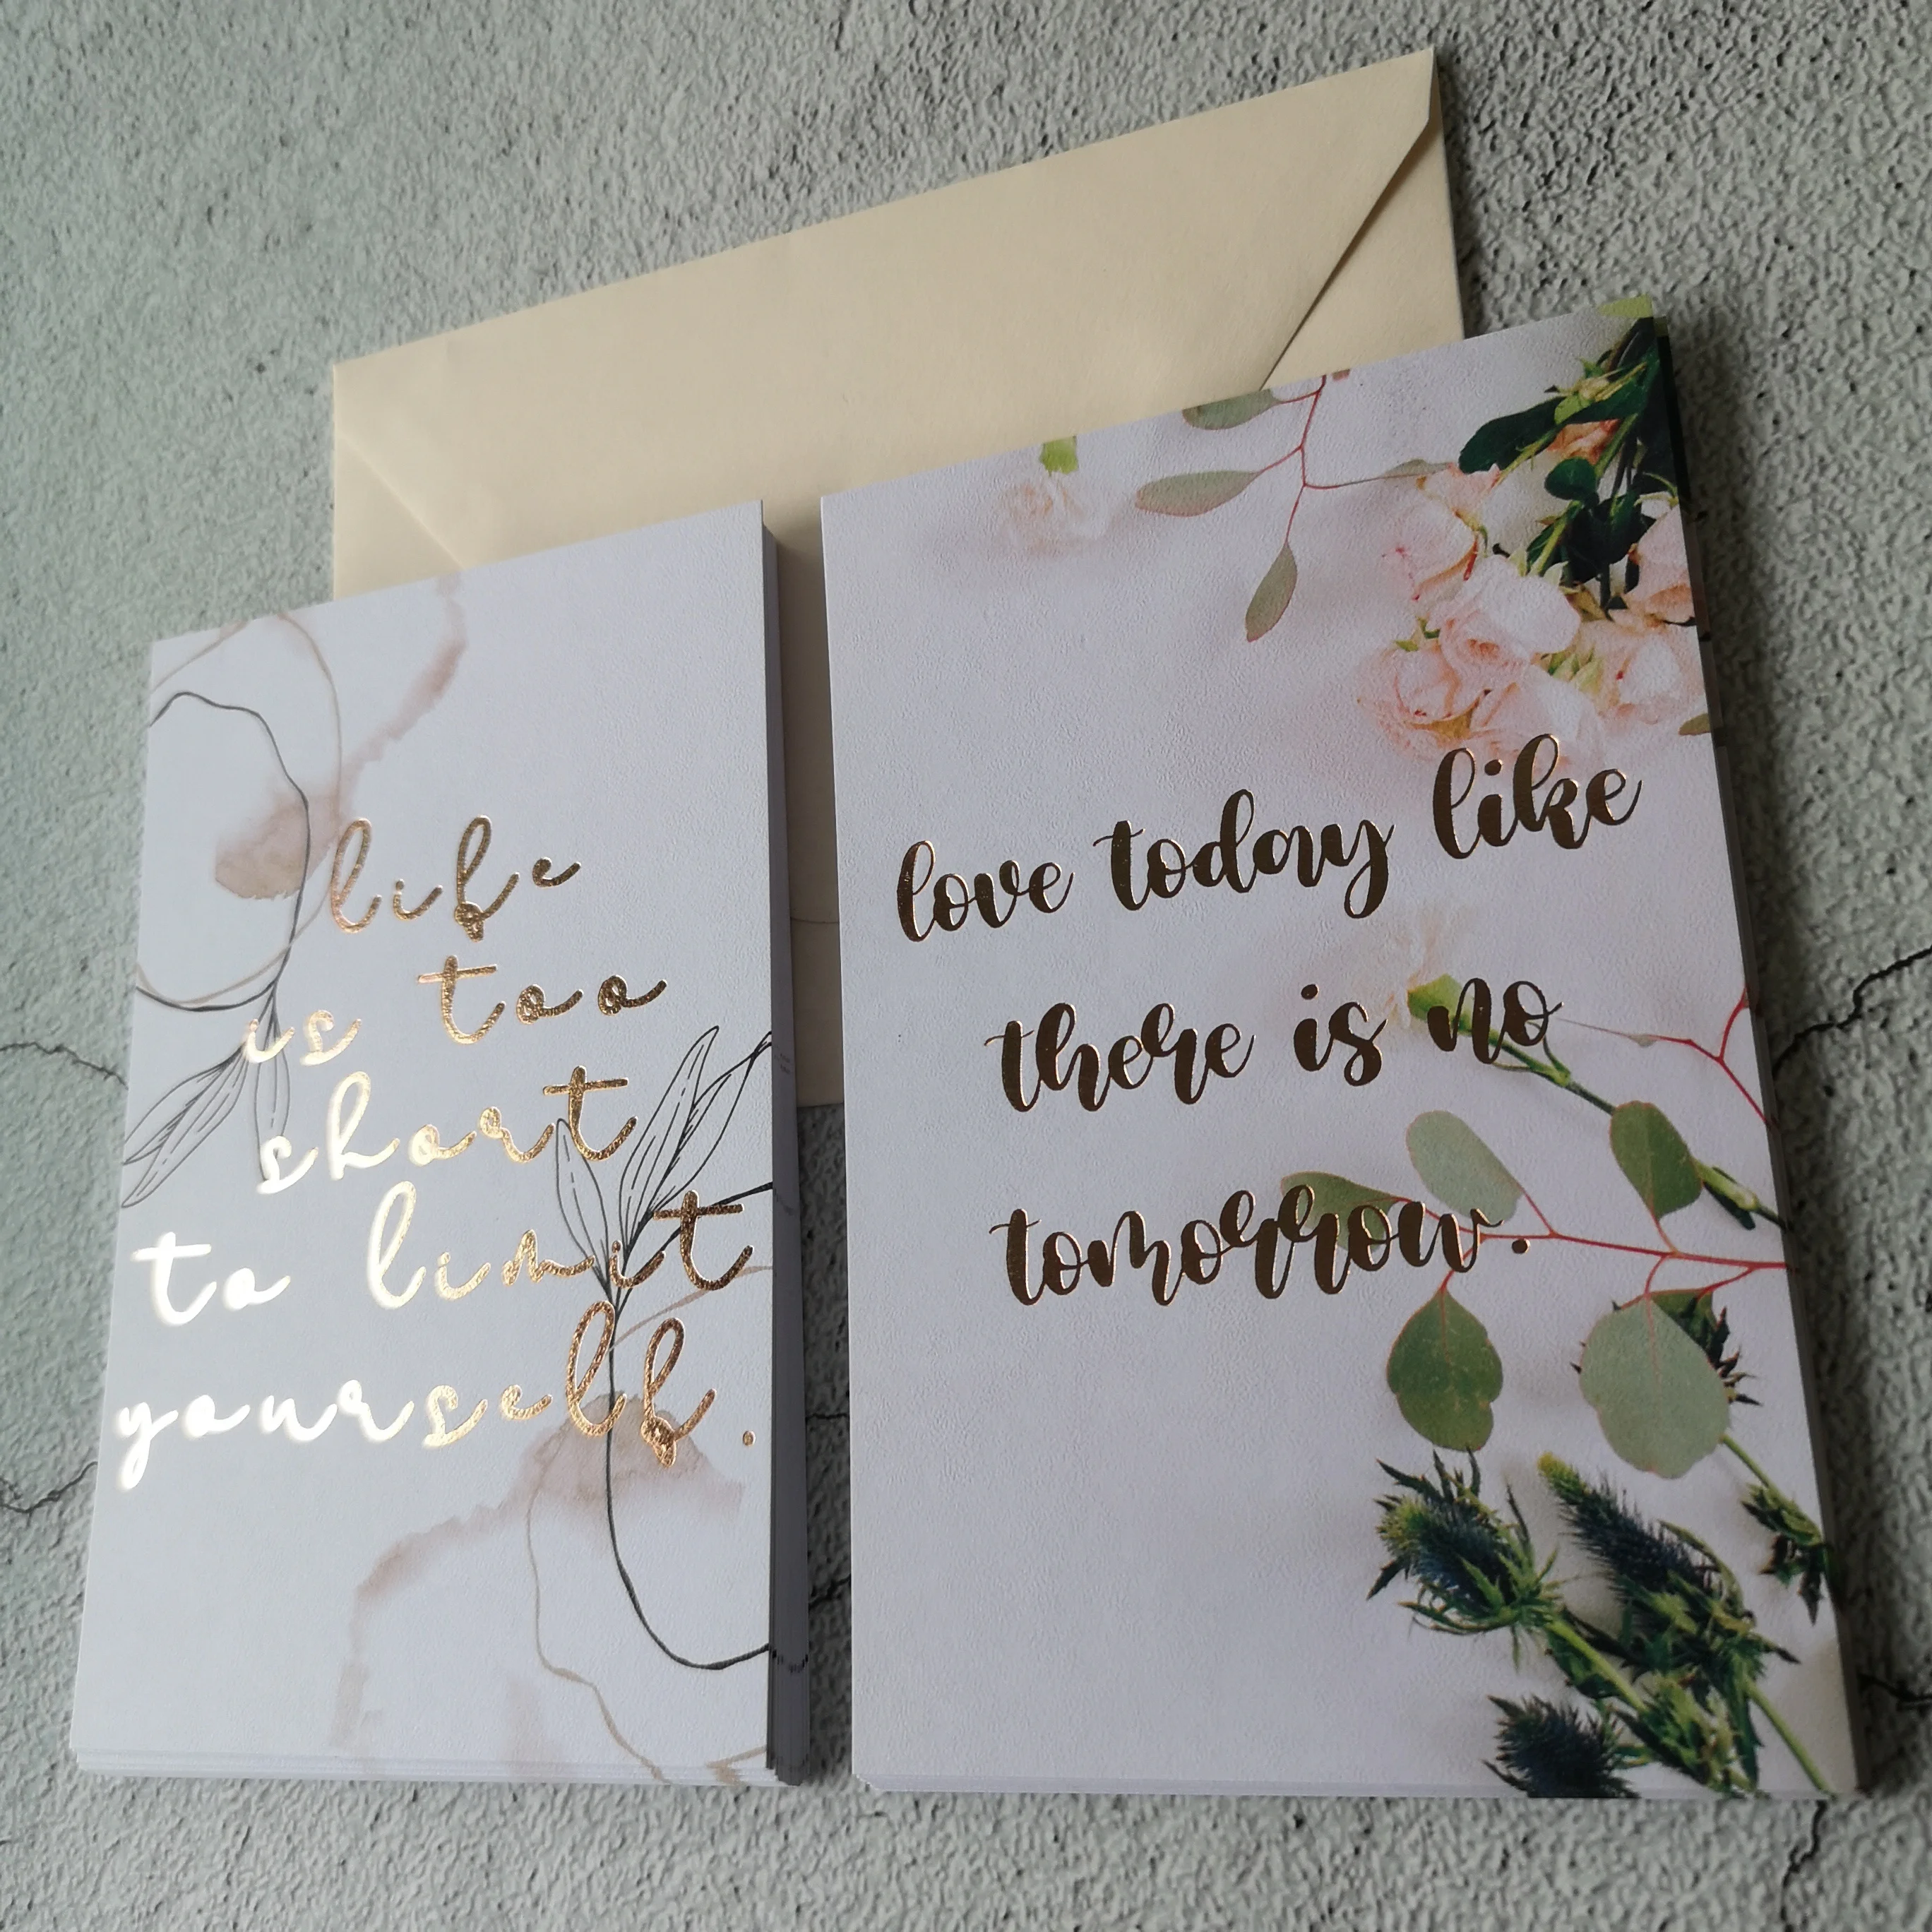 life
is too
short
to limit
yourself.
love today like
there is no
tomorrow.